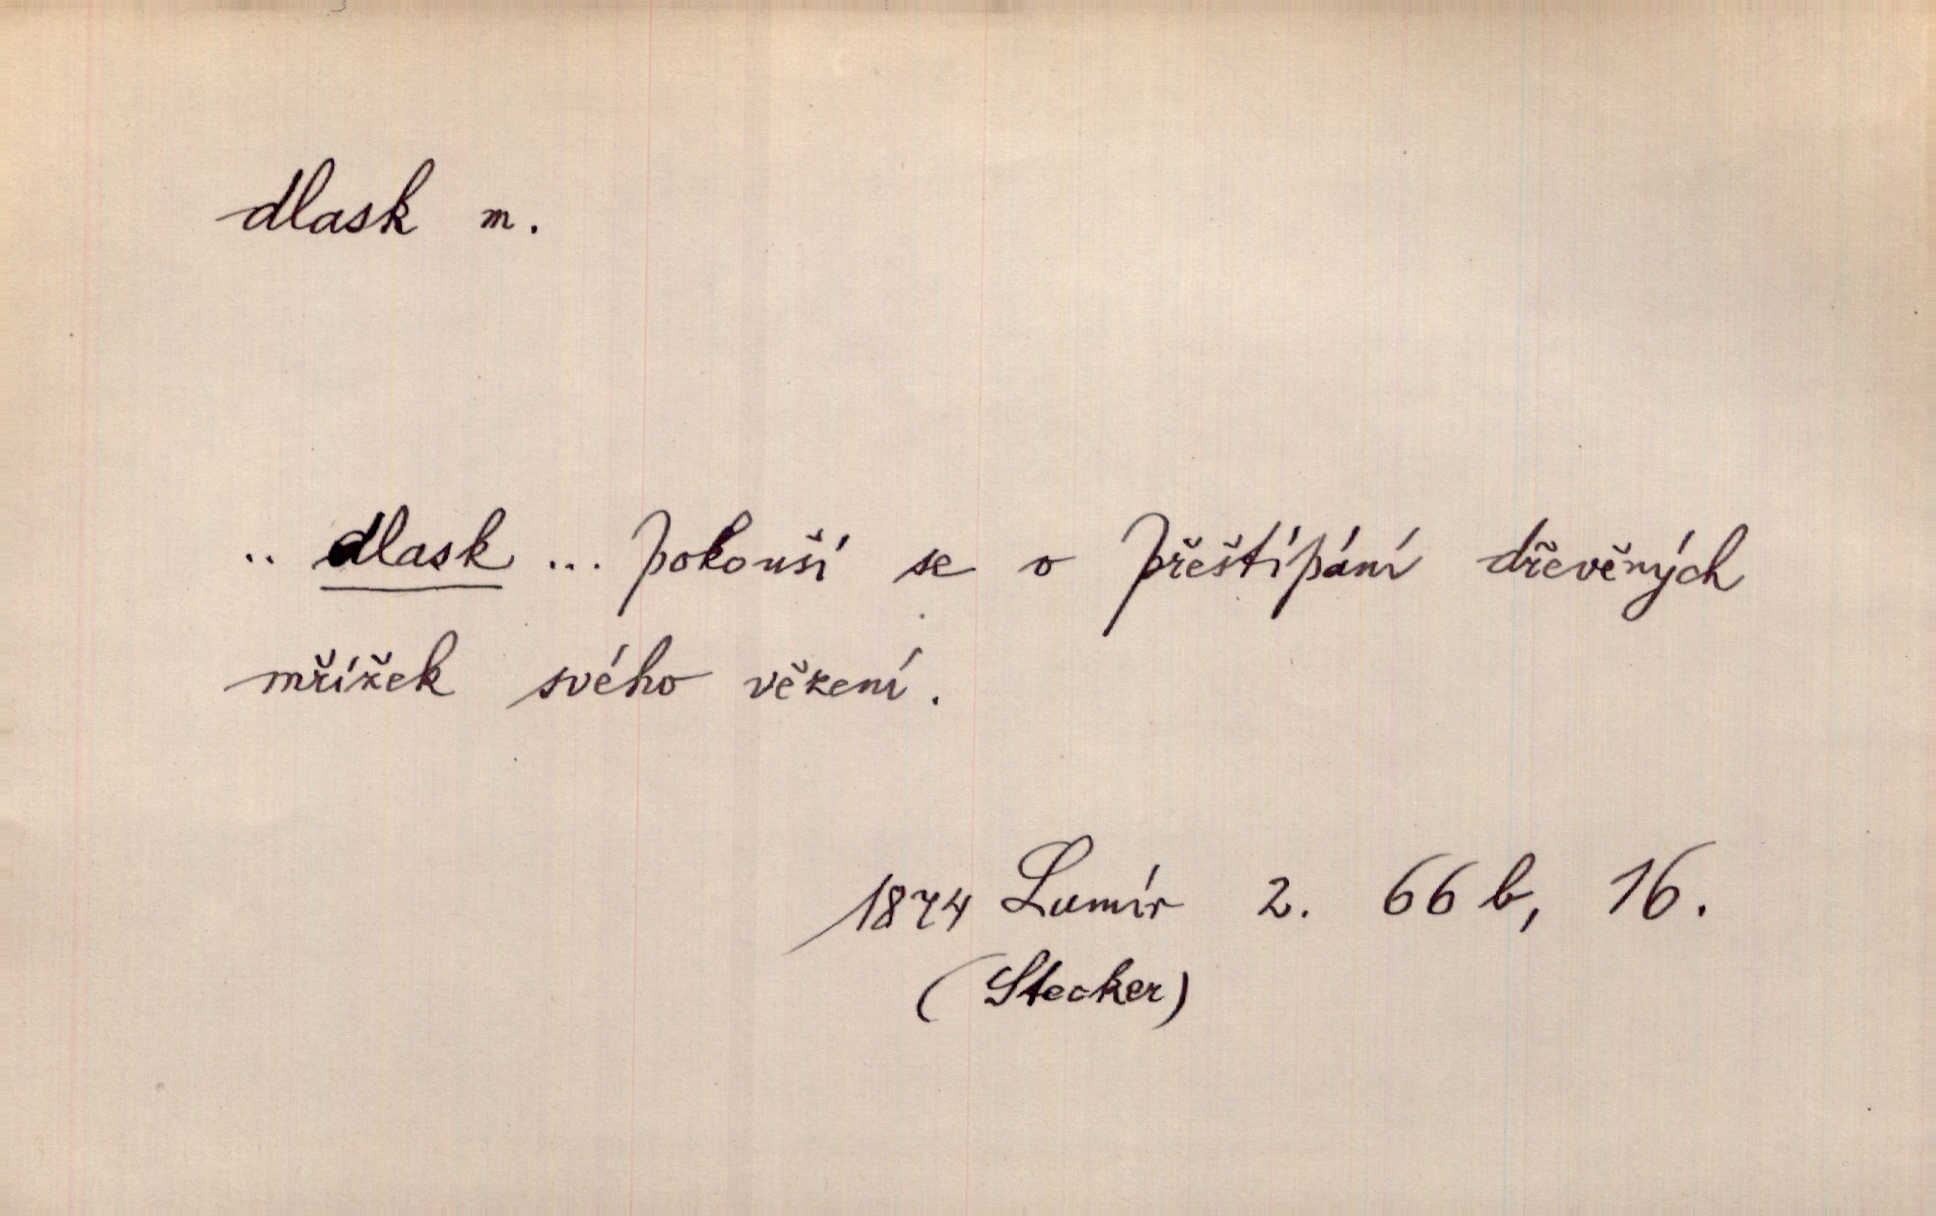 dlask m.
.. dlask ... pokouší se o přeštípání dřevěných
mřížek svého vězení.
1874 Lumír 2. 66 b, 16.
(Stecker)